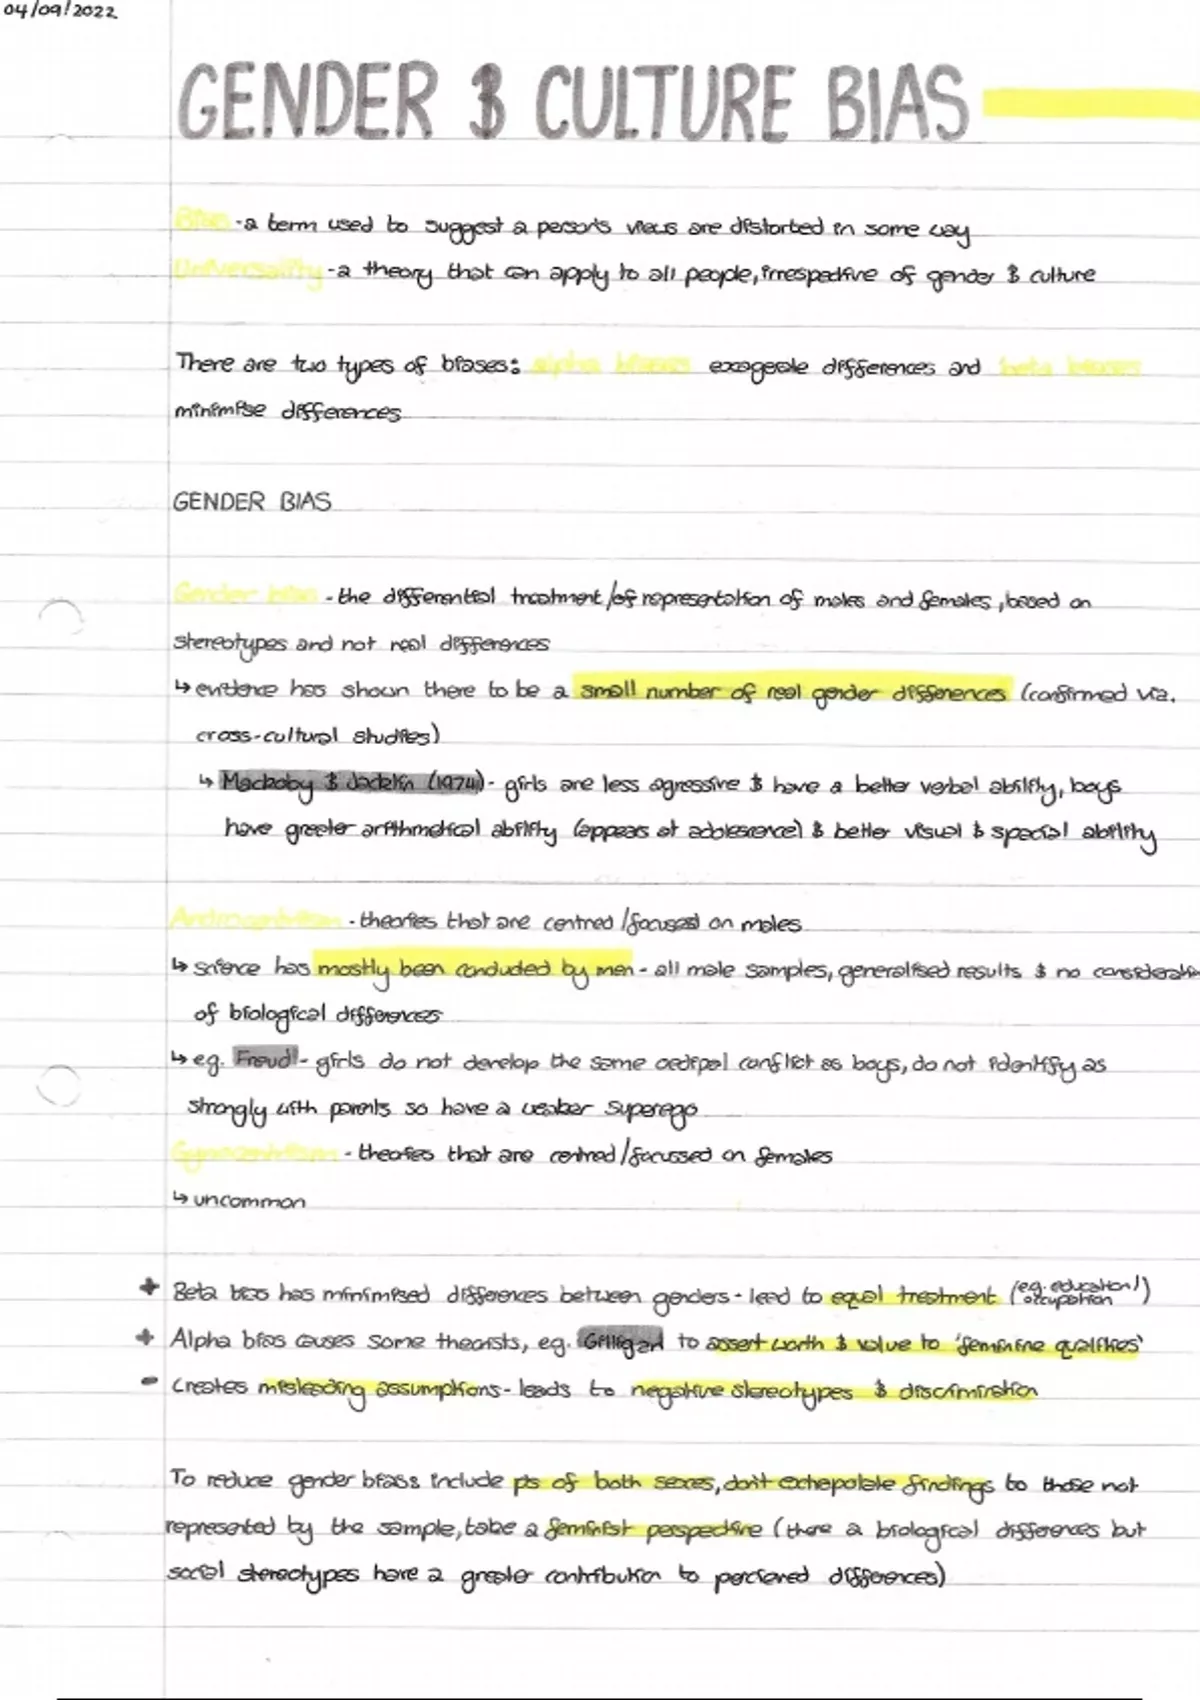 04/09/2022
GENDER & CULTURE BIAS
Bias - a term used to suggest a person's views are distorted in some way
Universality - a theory that can apply to all people, irrespective of gender & culture
There are two types of biases: alpha biases exaggerate differences and beta biases
minimise differences
GENDER BIAS
Gender bias - the differential treatment /of representation of males and females, based on
stereotypes and not real differences
↳ evidence has shown there to be a small number of real gender differences (confirmed via.
cross-cultural studies)
↳ Mackoby & Jacklin (1974) - girls are less agressive & have a better verbal ability, boys
have greater arithmetical ability (appears at adolescence) & better visual & special ability
Androcentrism - theories that are centred /focused on males
↳ science has mostly been conducted by men - all male samples, generalised results & no consideratio
of biological differences
↳ eg. Freud - girls do not develop the same oedipal conflict as boys, do not identify as
strongly with parents so have a weaker superego
Gynocentrism - theories that are centred /focussed on females
↳ uncommon
+ Beta bias has minimised differences between genders - lead to equal treatment (eg. education/
occupation)
+ Alpha bias causes some theorists, eg. Gilligan to assert worth & value to 'feminine qualities'
- Creates misleading assumptions - leads to negative stereotypes & discrimination
To reduce gender biass include pts of both sexes, don't extrapolate findings to those not
represented by the sample, take a feminist perspective (there a biological differences but
social stereotypes have a greater contribution to percieved differences)